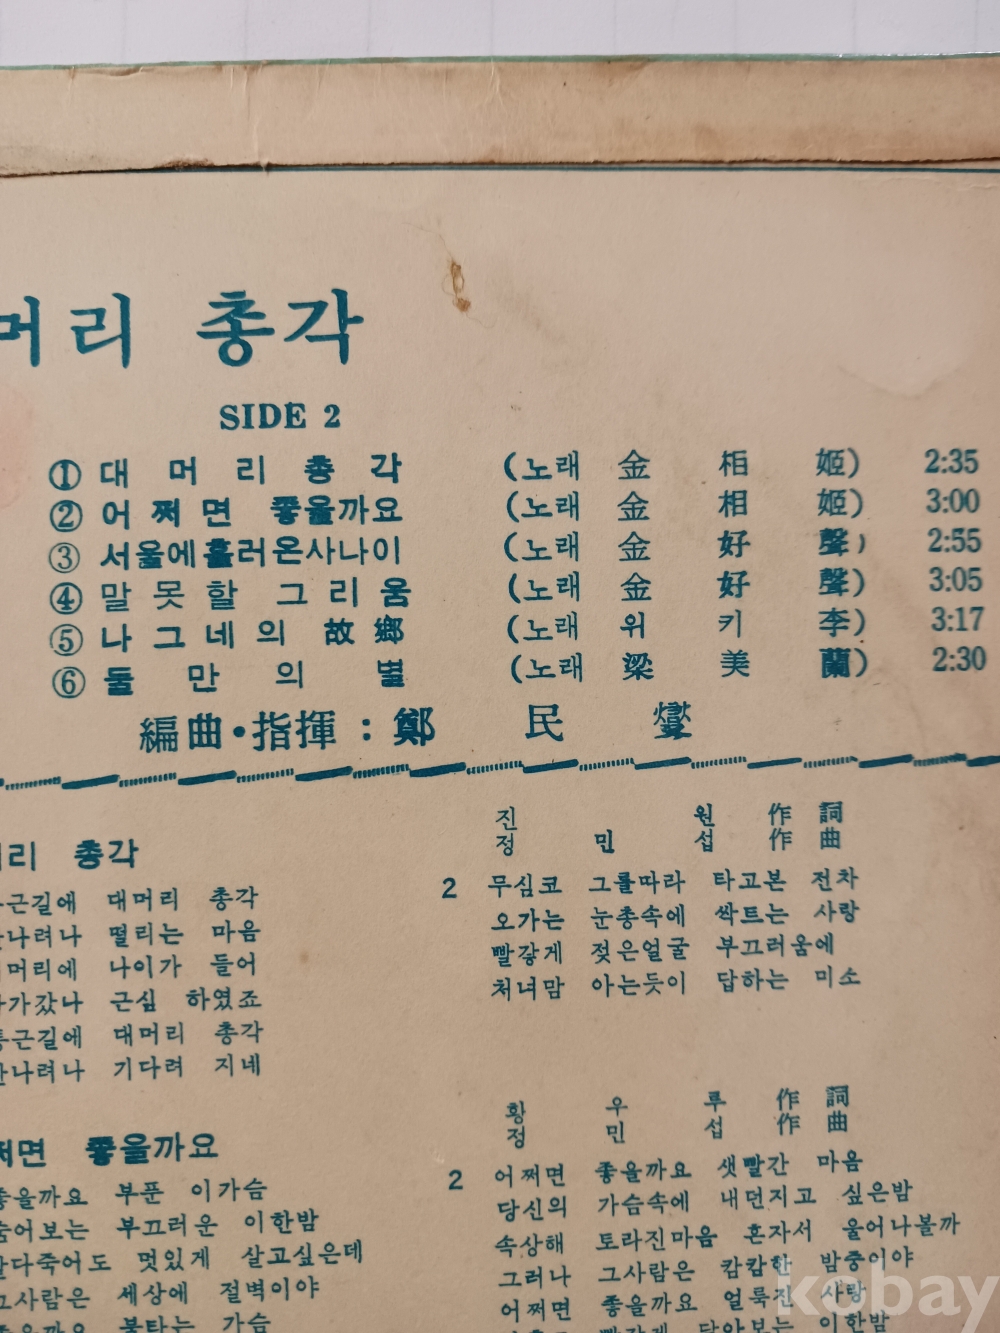 머리 총각
SIDE 2
① 대머리 총각 (노래 金相姬) 2:35
② 어쩌면 좋을까요 (노래 金相姬) 3:00
③ 서울에흘러온사나이 (노래 金好聲) 2:55
④ 말못할 그리움 (노래 金好聲) 3:05
⑤ 나그네의 故鄕 (노래 위키李) 3:17
⑥ 둘만의 별 (노래 梁美蘭) 2:30
編曲·指揮 : 鄭民燮
머리 총각
진원 作詞
정민섭 作曲
근길에 대머리 총각
나려나 떨리는 마음
머리에 나이가 들어
가갔나 근심 하였죠
근길에 대머리 총각
나려나 기다려 지네
2 무심코 그를따라 타고본 전차
오가는 눈총속에 싹트는 사랑
빨갛게 젖은얼굴 부끄러움에
처녀맘 아는듯이 답하는 미소
쩌면 좋을까요
황우루 作詞
정민섭 作曲
좋을까요 부푼 이가슴
숨어보는 부끄러운 이한밤
다죽어도 멋있게 살고싶은데
그사람은 세상에 절벽이야
좋을까요 불타는 가슴
2 어쩌면 좋을까요 샛빨간 마음
당신의 가슴속에 내던지고 싶은밤
속상해 토라진마음 혼자서 울어나볼까
그러나 그사람은 캄캄한 밤중이야
어쩌면 좋을까요 얼룩진 사랑
이한밤
kobay